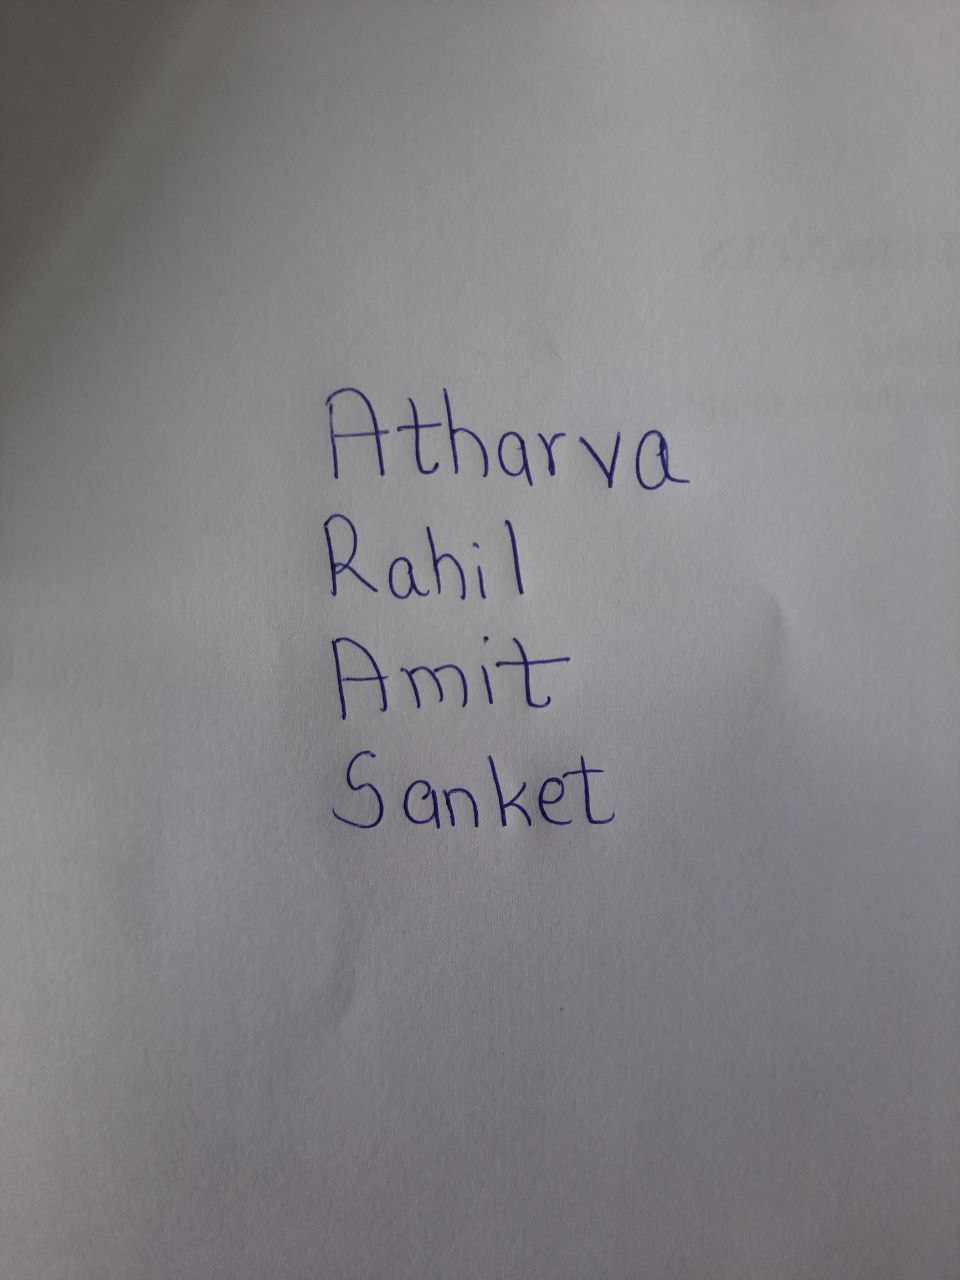 Atharva
Rahil
Amit
Sanket